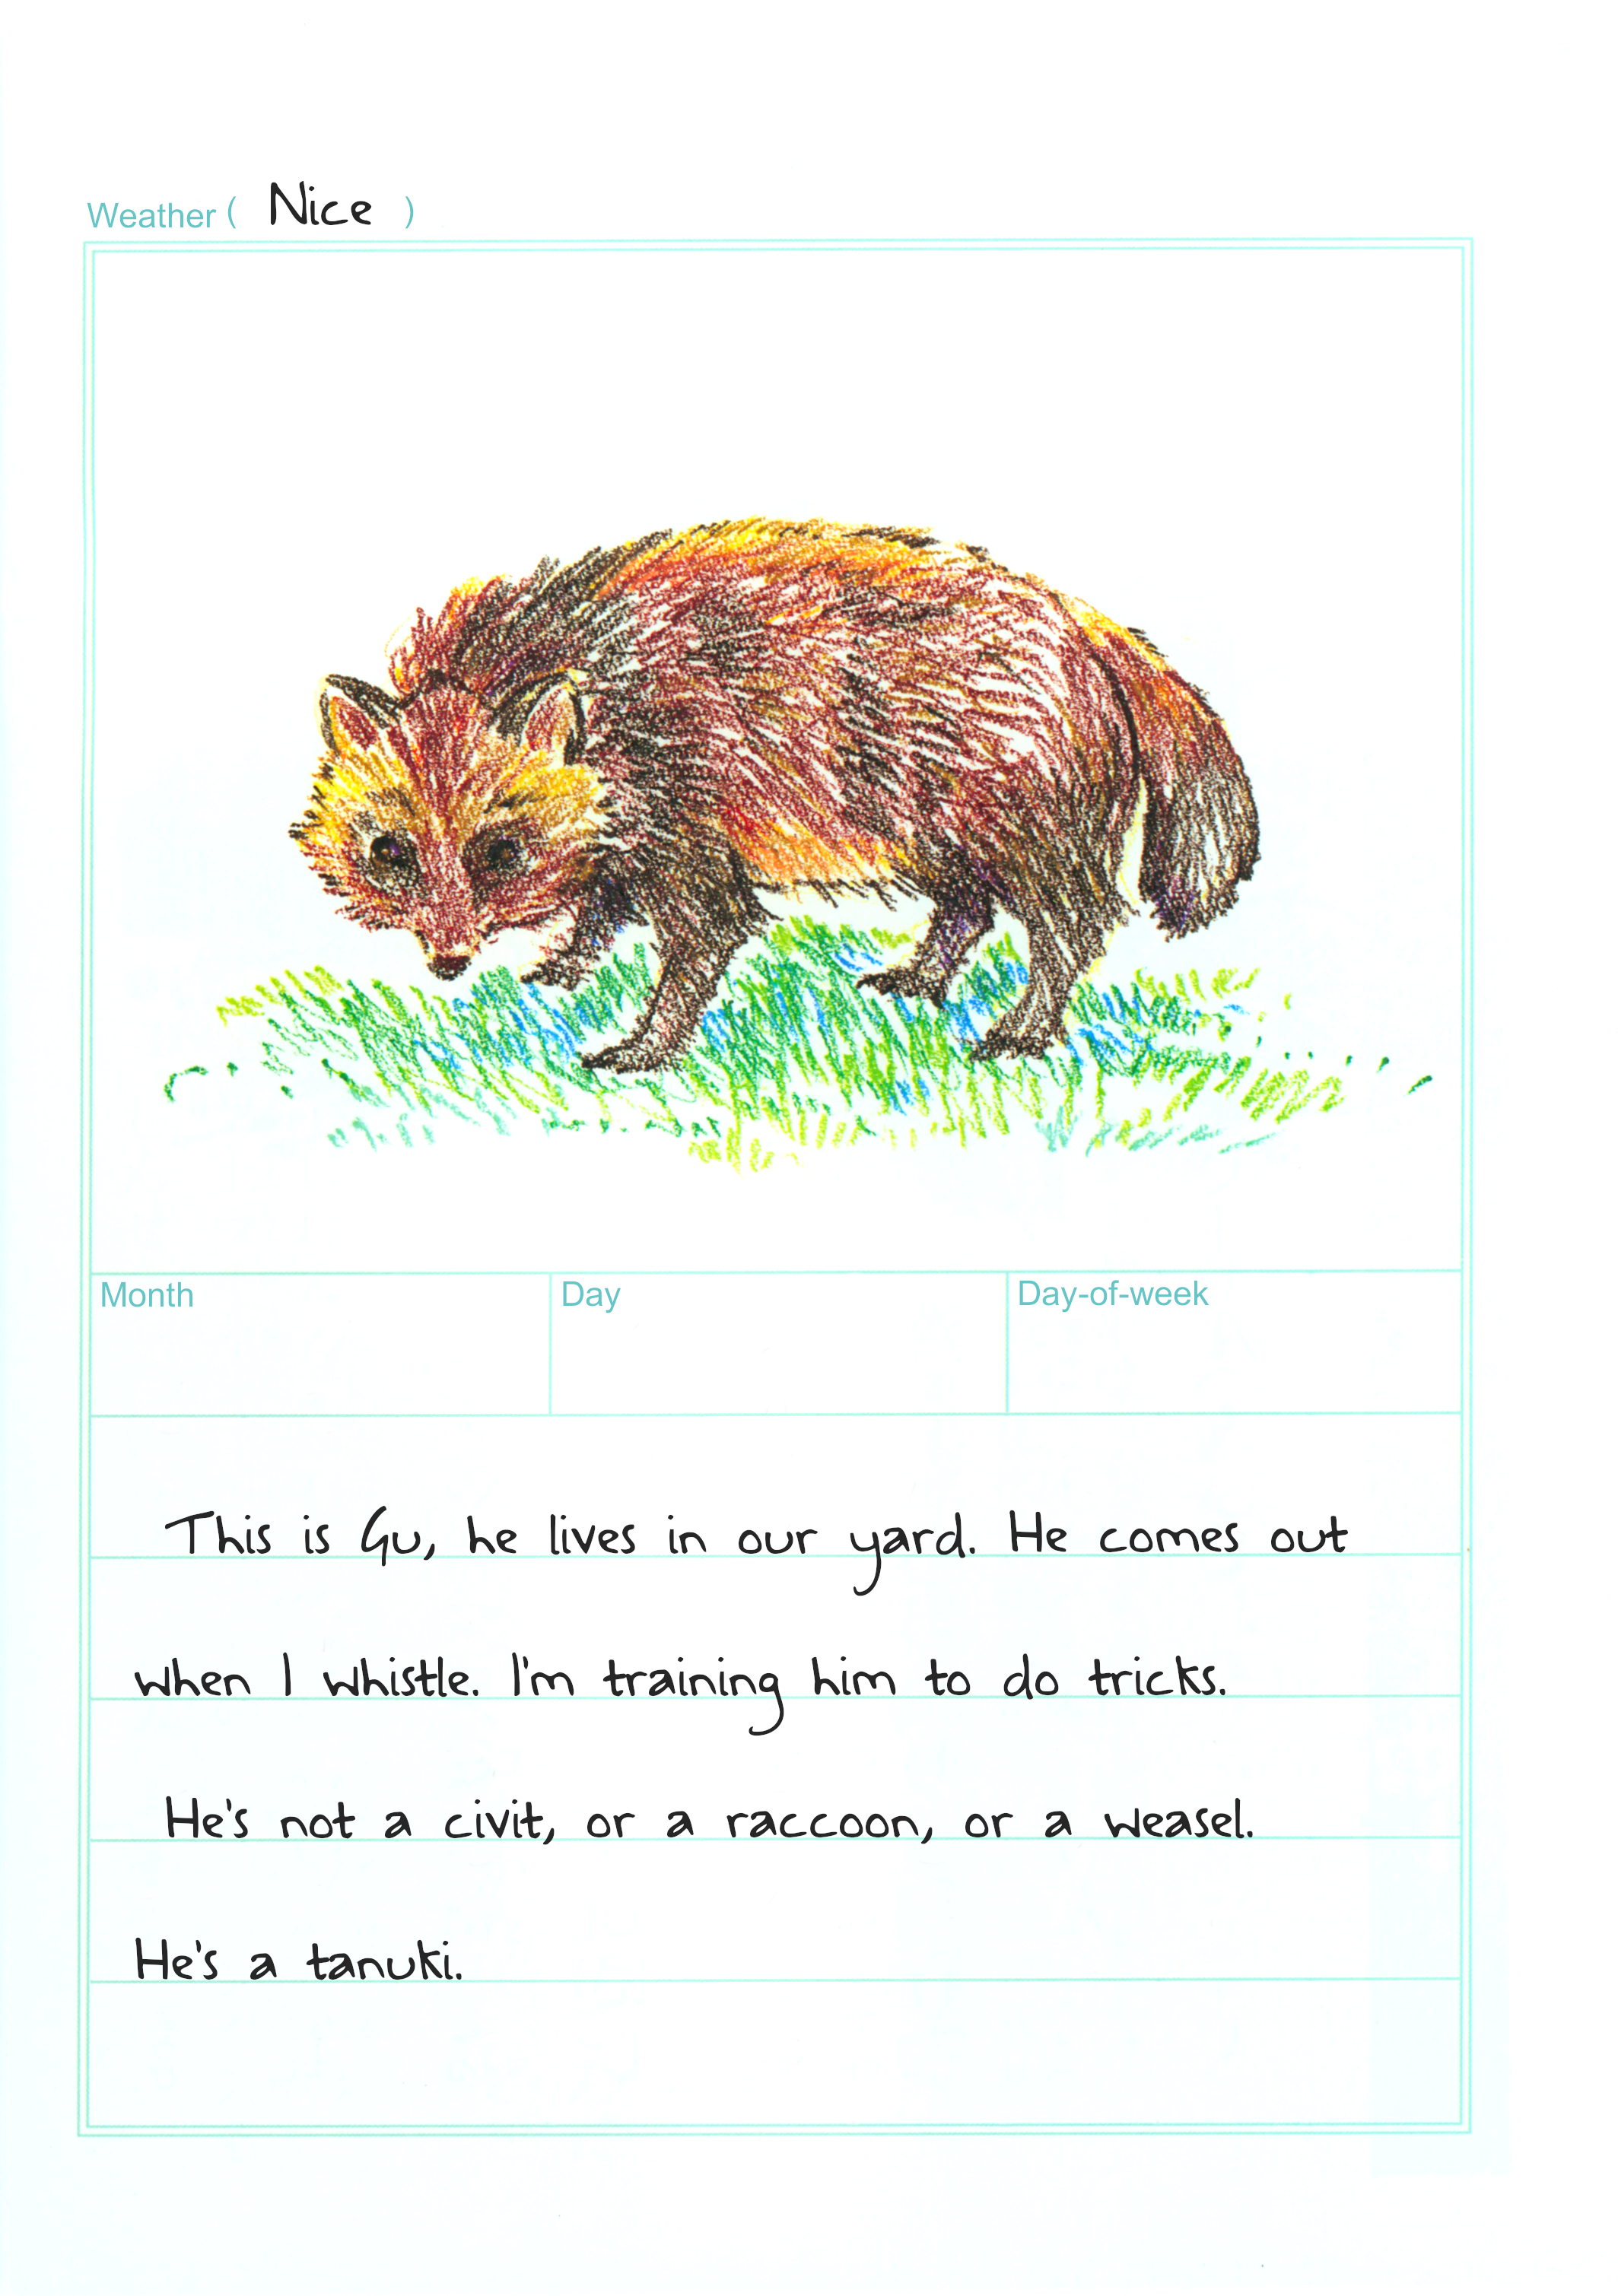 Weather ( Nice )
Month
Day
Day-of-week
This is Gu, he lives in our yard. He comes out
when I whistle. I'm training him to do tricks.
He's not a civit, or a raccoon, or a weasel.
He's a tanuki.